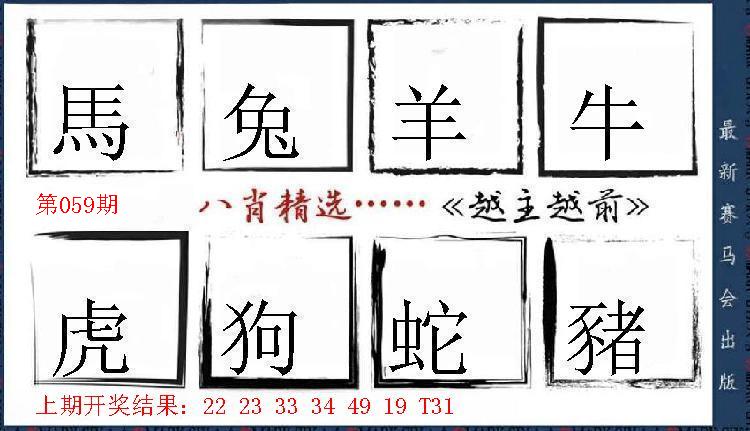 馬 兔 羊 牛
第059期 八肖精选……《越主越前》
虎 狗 蛇 豬
上期开奖结果：22 23 33 34 49 19 T31
最新赛马会出版